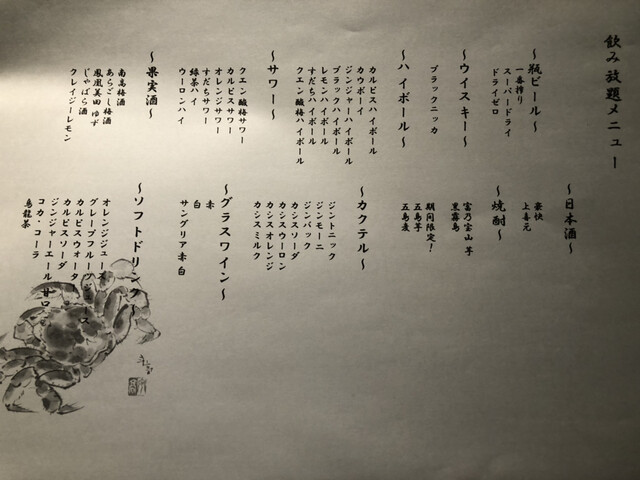 飲み放題メニュー
〜瓶ビール〜
一番搾り
スーパードライ
ドライゼロ
〜ウイスキー〜
ブラックニッカ
〜ハイボール〜
カルピスハイボール
カウボーイ
ジンジャーハイボール
ブラックハイボール
レモンハイボール
すだちハイボール
クエン酸梅ハイボール
〜サワー〜
クエン酸梅サワー
カルピスサワー
オレンジサワー
すだちサワー
緑茶ハイ
ウーロンハイ
〜果実酒〜
南高梅酒
あらごし梅酒
鳳凰美田 ゆず
じゃばら酒
クレイジーレモン
〜日本酒〜
豪快
上喜元
〜焼酎〜
富乃宝山 芋
黒霧島
期間限定！
五島芋
五島麦
〜カクテル〜
ジントニック
ジンモーニ
ジンバック
カシスソーダ
カシスウーロン
カシスオレンジ
カシスミルク
〜グラスワイン〜
赤
白
サングリア 赤 白
〜ソフトドリンク〜
オレンジジュース
グレープフルーツ
カルピスウォーター
カルピスソーダ
ジンジャーエール
コカ・コーラ
烏龍茶